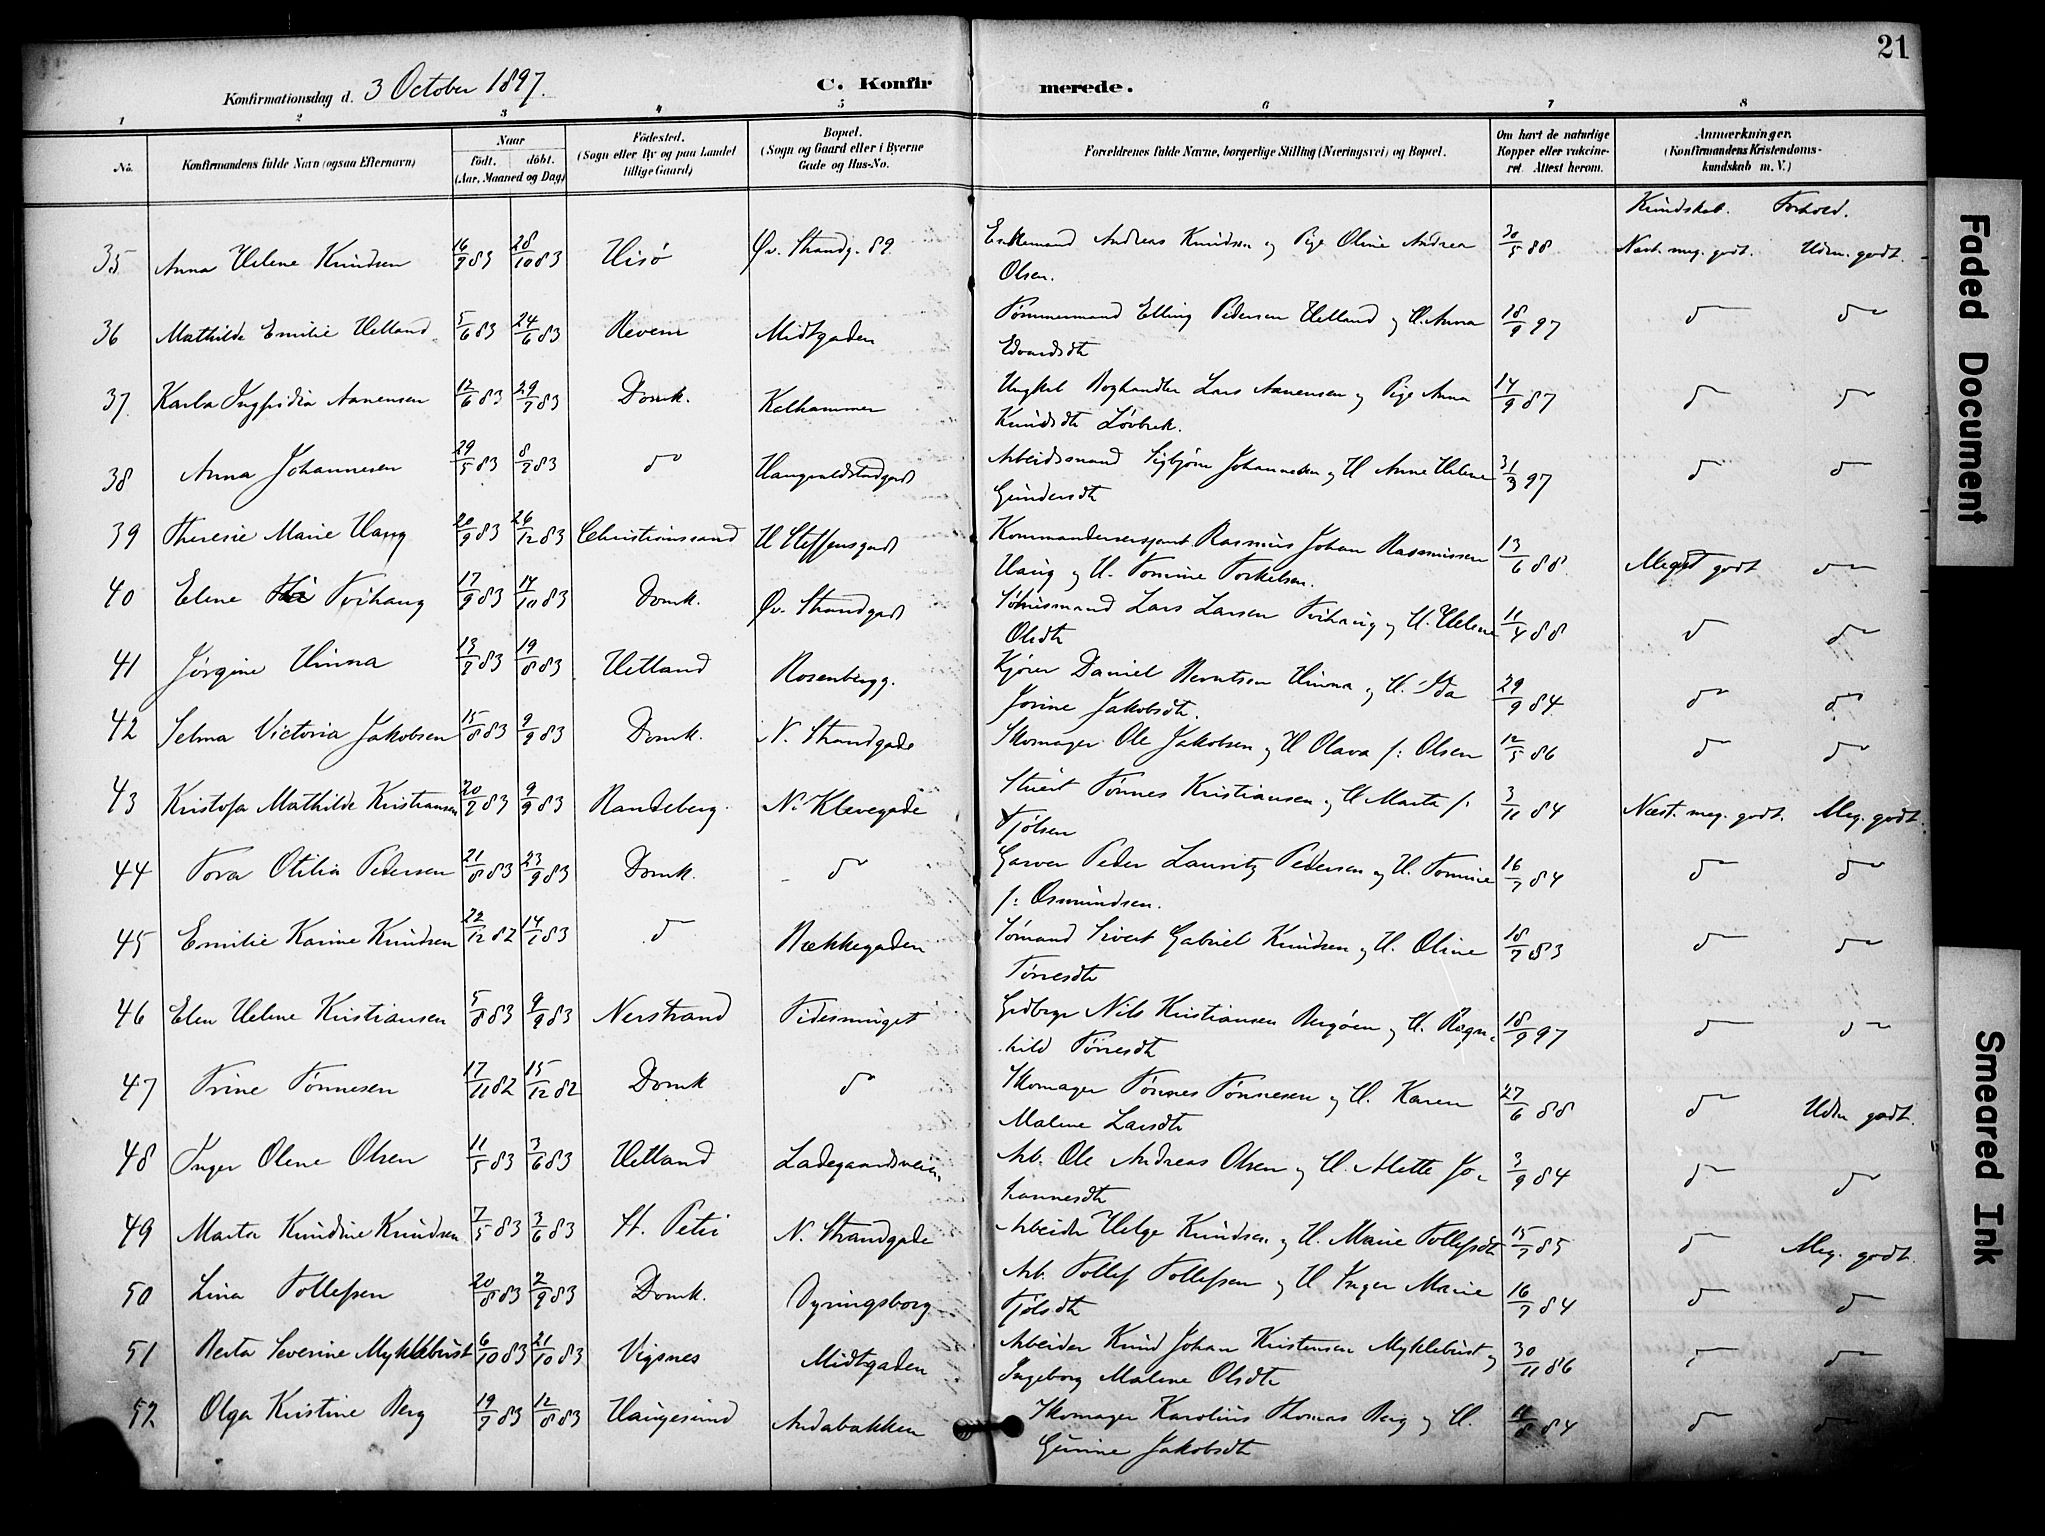 21
Konfirmationsdag d. 3 October 1897.
C. Konfirmerede.
1 2 3 4 5 6 7 8
No.
Konfirmandens fulde Navn (ogsaa Efternavn)
Naar
født. døbt.
(Aar, Maaned og Dag)
Fødested.
(Sogn eller By og paa Landet
tillige Gaard)
Bopæl.
(Sogn og Gaard eller i Byerne
Gade og Hus-No.
Forældrenes fulde Navne, borgerlige Stilling (Næringsvei) og Bopæl.
Om havt de naturlige
Kopper eller vakcine-
ret. Attest herom.
Anmærkninger.
(Konfirmandens Kristendoms-
kundskab m. V.)
Kundskab. Forhold.
35 Anna Helene Knudsen 16/9 83 28/10 83 Hisø Øv. Strandg. 89 Enkemand Andreas Knudsen og Pige Oline Andrea 30/5 88 Næst. meg. godt. Udm. godt.
Olsen.
36 Mathilde Emilie Helland 5/6 83 24/6 83 Midtgaden Tømmermand Elling Pedersen Helland og H. Anna 18/9 97 do do
Edvardsdtr
37. Karla Ingfridia Aanensen 12/6 83 29/7 83 Domk. Kalhammer Ungkl Boghandler Lars Aanensen og Pige Anna 14/9 87 do do
Knudsdtr Løvbrek.
38 Anna Johannesen 29/5 83 8/7 83 do Haugvaldstadgad Arbeidsmand Sigbjørn Johannesen og H Anne Helene 31/3 97 do do
Gundersdtr
39 Theresie Marie Haug 20/9 83 26/12 83 Christianssand H Steffensgad Kommandersersjant Rasmus Johan Rasmussen 13/6 88 Meget godt do
Haug og H. Tomine Torkelsen.
40 Elene Tvihaug 17/9 83 14/10 83 Domk. Øv. Strandgad Lars Larsen Tvihaug og H. Helene 11/4 88 do do
Olsdtr
41 Jørgine Hinna 13/7 83 19/8 83 Hetland Rosenbergg. Kjører Daniel Berntsen Hinna og H. Ida 29/9 84. do do
Jorine Jakobsdtr.
42 Selma Victoria Jakobsen 15/8 83 9/9 83 Domk. N. Strandgade Skomager Ole Jakobsen og H Olava f: Olsen 12/5 86 do do
43 Kristofa Mathilde Kristiansen 20/7 83 9/9 83 Randeberg. N. Klevegade Stuert Tønnes Kristiansen og H Marta f: 3/11 84 Næst. meg. godt. Meg. godt.
Tjølsen
44 Tora Otilia Pedersen 21/8 83 23/9 83 Domk. do Garver Peder Lauritz Pedersen og H. Tomine 16/7 84 do do
f: Osmundsen.
45 Emilie Karine Knudsen 22/12 82 14/1 83 do Bækkegaden Sømand Sivert Gabriel Knudsen og H. Oline 18/7 83 do do
Tørresdtr
46 Elen Helene Kristiansen 5/8 83 9/9 83 Nerstrand Tidesminget Nils Kristiansen Bergøen og H. Ragn- 18/9 97 do do
hild Tørresdtr
47 Trine Tønnesen 17/11 82 15/12 82 Domk do Skomager Tønnes Tønnesen og H. Karen 27/6 88 do Udm godt.
Malene Larsdtr
48 Inger Olene Olsen 11/5 83 3/6 83 Hetland Ladegaardsveien Arb. Ole Andreas Olsen og H. Mette Jo- 3/9 84 do do
hannesdtr
49 Marta Knudine Knudsen 7/5 83 3/6 83 St. Petri N. Strandgade Arbeider Helge Knudsen og H. Marie Tollefsdtr 15/7 85 do Meg. godt.
50 Lina Tollefsen 20/8 83 2/9 83 Domk. Dyringsborg Arb. Tollef Tollefsen og H Inger Marie 16/7 84 do do
Tjølsdtr
51 Berta Severine Myklebust 6/10 83 21/10 83 Vigsnes Midtgaden Arbeider Knud Johan Kristensen Myklebust og 30/11 86 do do
Ingeborg Malene Olsdtr
52 Olga Kristine Berg 19/7 83 12/8 83 Haugesund Andabakken Skomager Karolius Thomas Berg og H. 84 do do
Gurine Jakobsdtr
Faded Document
Smeared Ink